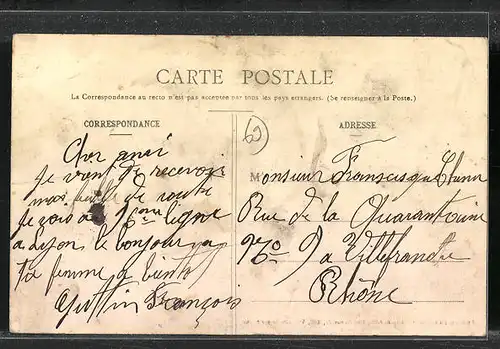 CARTE POSTALE
La Correspondance au recto n'est pas acceptée par tous les pays étrangers. (Se renseigner à la Poste.)
CORRESPONDANCE
ADRESSE
Cher ami
Je vient de recevoir
mas feuille de route
Je a ligne
a Lyon le bonjour a
ta femme a bientôt
François
Monsieur
Rue de la Quarantaine
No 9 a Villefranche
Rhône